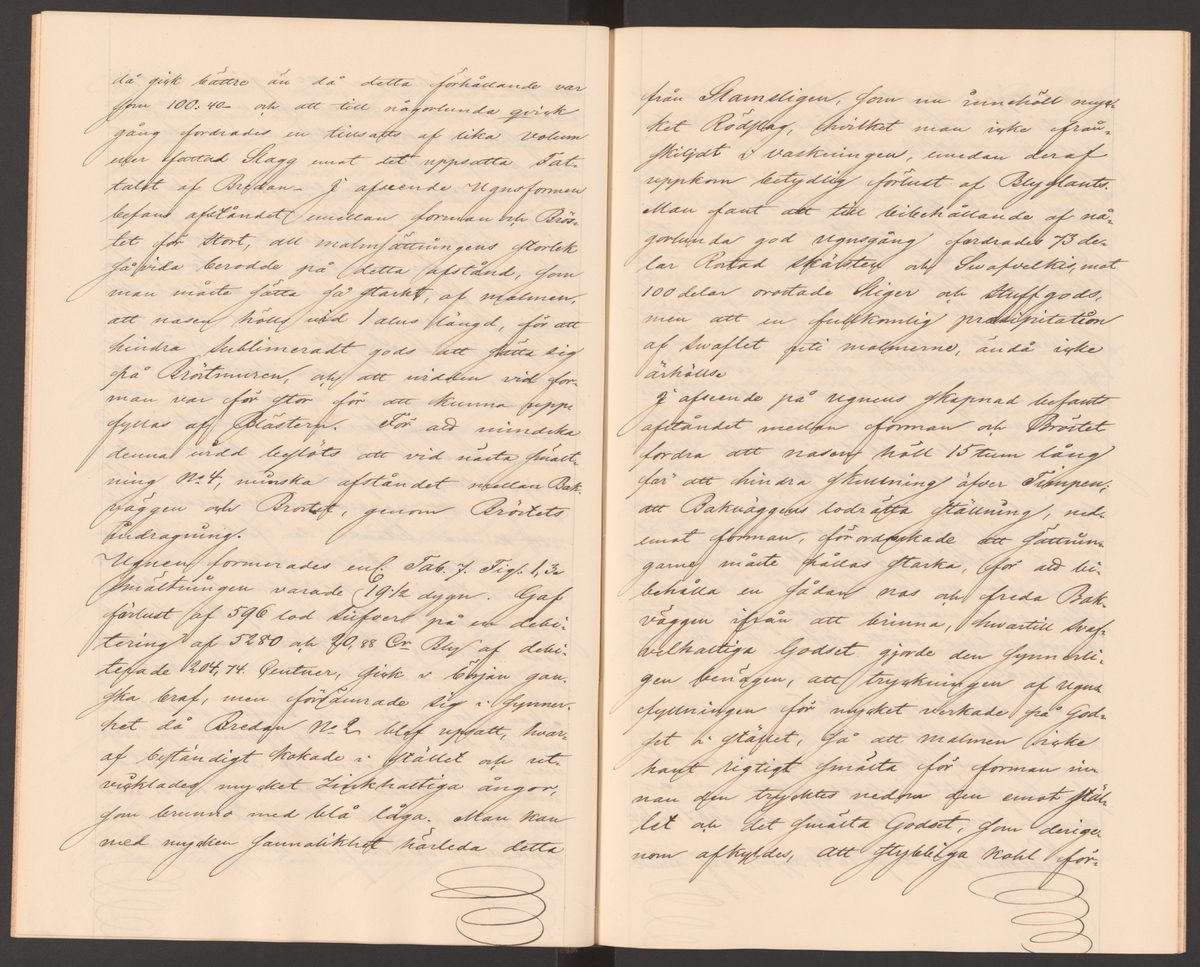 då gick bättre än då detta förhållande var
som 100:40 och att till någorlunda qvick
gång fordrades en tillsatts af lika volum
eller fattad Slagg emot det uppsatta Tat-
talet af Bredan – I afseende Ugnsformen
befans afståndet emellan forman och Brös-
tet för stort, att malmsättningens storlek
så vida berodde på detta afstånd, som
man måste sätta så starkt, af malmen,
att nasen hölls vid 1 alns längd, för att
hindra sublimeradt gods att sätta sig
på Bröstmuren, och att vidden vid for-
man var för stor för att kunna uppe
fyllas af Blästern. För att mindska
denna vidd beslöts att vid nästa smält-
ning No 4, minska afståndet mellan Bak-
väggen och Bröstet, genom Bröstets
indragning.
Ugnen formerades enl. Tab. 7. Fig. 1, 3.
Smältningen varade 19 1/2 dygn. Gaf
förlust af 596 lod Silfver på en debi-
tering af 5280 och 20,88 Cr Bly af debi-
terade 204,74 Centner, gick i början gan-
ska braf, men försämrade sig i synner-
het då Bredan No 2 blef upsatt, hvar-
af beständigt kokade i stället och ut-
vicklades mycket Zinkhaltiga ångor,
som brunno med blå låga. Man kan
med mycken sannolikhet härleda detta
från Slamsligen, som nu innehöll myc-
ket Rödslag, hvilket man icke ifrån-
skiljdt i vaskningen, emedan deraf
uppkom betydlig förlust af Blyglants.
Man fant att till beibehållande af nå-
gorlunda god ugnsgång fordrades 73 de-
lar Rostad skärsten och Svafvelkis, mot
100 delar orostade Sliger och stuffgods,
men att en fullkomlig præcipitation
af svaflet uti malmerne, ändå icke
ärhölls.
I afseende på ugnens skapnad befants
afståndet medan forman och Bröstet
fordra att nasen höll 15 tum lång
för att hindra skumning äfver Timpen,
att Bakväggens lodrätta ställning, ned-
emot forman, förordsakade att sättnin-
garne måste hållas starka, för att bi-
behålla en sådan nas och freda Bak-
väggen ifrån att brinna, hwartill svaf-
velhaltiga Godset gjorde den synnerli-
gen benägen, att tryckningen af ugns
fyllningen för mycket verkade på God-
set i stället, så att malmen icke
hant rigtigt smälta för forman in-
nan den trycktes nedom den emot stäl-
let och det smälta Godset, som derige-
nom afkyldes, att stybbliga kohl för-